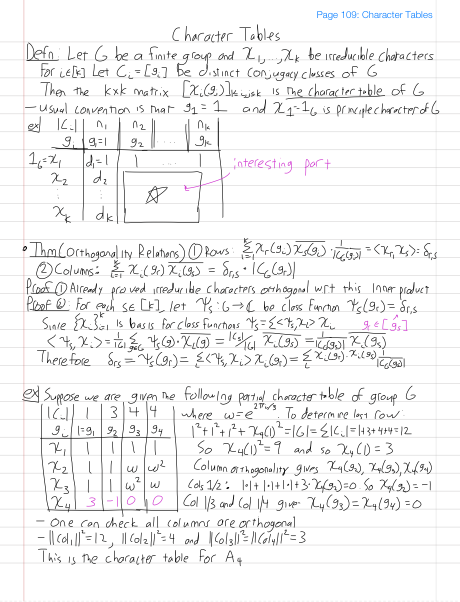 Page 109: Character Tables
Character Tables
Defn: Let G be a finite group and χ₁,...,χₖ be irreducible characters
For i∈[k] Let Cᵢ=[gᵢ] be distinct conjugacy classes of G
Then the k×k matrix [χᵢ(gⱼ)]₁≤i,j≤k is the character table of G
- usual convention is that g₁=1 and χ₁=1_G is principle character of G
ex| |Cᵢ| | n₁ | n₂ | ... | nₖ
gᵢ | g₁=1 | g₂ | ... | gₖ
1_G=χ₁ | d₁=1 | 1 .... 1
interesting part
χ₂ | d₂
⋮ ⋮
χₖ | dₖ
• Thm (Orthogonality Relations) ① Rows: Σᵢ₌₁ᵏ χᵣ(gᵢ) χₛ(gᵢ)‾ · 1/|C_G(gᵢ)| = <χᵣ,χₛ> = δᵣ,ₛ
② Columns: Σᵢ₌₁ᵏ χᵢ(gᵣ) χᵢ(gₛ)‾ = δᵣ,ₛ · |C_G(gᵣ)|
Proof ① Already proved irreducible characters orthogonal wrt this inner product
Proof ②: For each s∈[k], let Ψₛ:G→ℂ be class function Ψₛ(gᵣ)=δᵣ,ₛ
Since {χᵢ}ᵢ₌₁ᵏ is basis for class functions Ψₛ=Σ<Ψₛ,χᵢ>χᵢ
<Ψₛ,χᵢ> = 1/|G| Σ Ψₛ(g)·χᵢ(g)‾ = |Cₛ|/|G| χᵢ(gₛ)‾ = 1/|C_G(gₛ)| χᵢ(gₛ)‾
Therefore δᵣ,ₛ = Ψₛ(gᵣ) = Σ<Ψₛ,χᵢ>χᵢ(gᵣ) = Σ χᵢ(gᵣ)·χᵢ(gₛ)‾ 1/|C_G(gₛ)|
ex| Suppose we are given the following partial character table of group G
|Cᵢ| | 1 | 3 | 4 | 4 where ω=e^{2πi/3}. To determine last row:
gᵢ | 1=g₁ | g₂ | g₃ | g₄ 1²+1²+1²+χ₄(1)²=|G|=Σ|Cᵢ|=1+3+4+4=12
χ₁ | 1 | 1 | 1 | 1 So χ₄(1)²=9 and so χ₄(1)=3
χ₂ | 1 | 1 | ω | ω² Column orthogonality gives χ₄(g₂), χ₄(g₃), χ₄(g₄)
χ₃ | 1 | 1 | ω² | ω Cols 1/2: 1·1+1·1+1·1+3·χ₄(g₂)=0. So χ₄(g₂)=-1
χ₄ | 3 | -1 | 0 | 0 Col 1/3 and Col 1/4 give χ₄(g₃)=χ₄(g₄)=0
- One can check all columns are orthogonal
- ||Col₁||²=12, ||Col₂||²=4 and ||Col₃||²=||Col₄||²=3
This is the character table for A₄